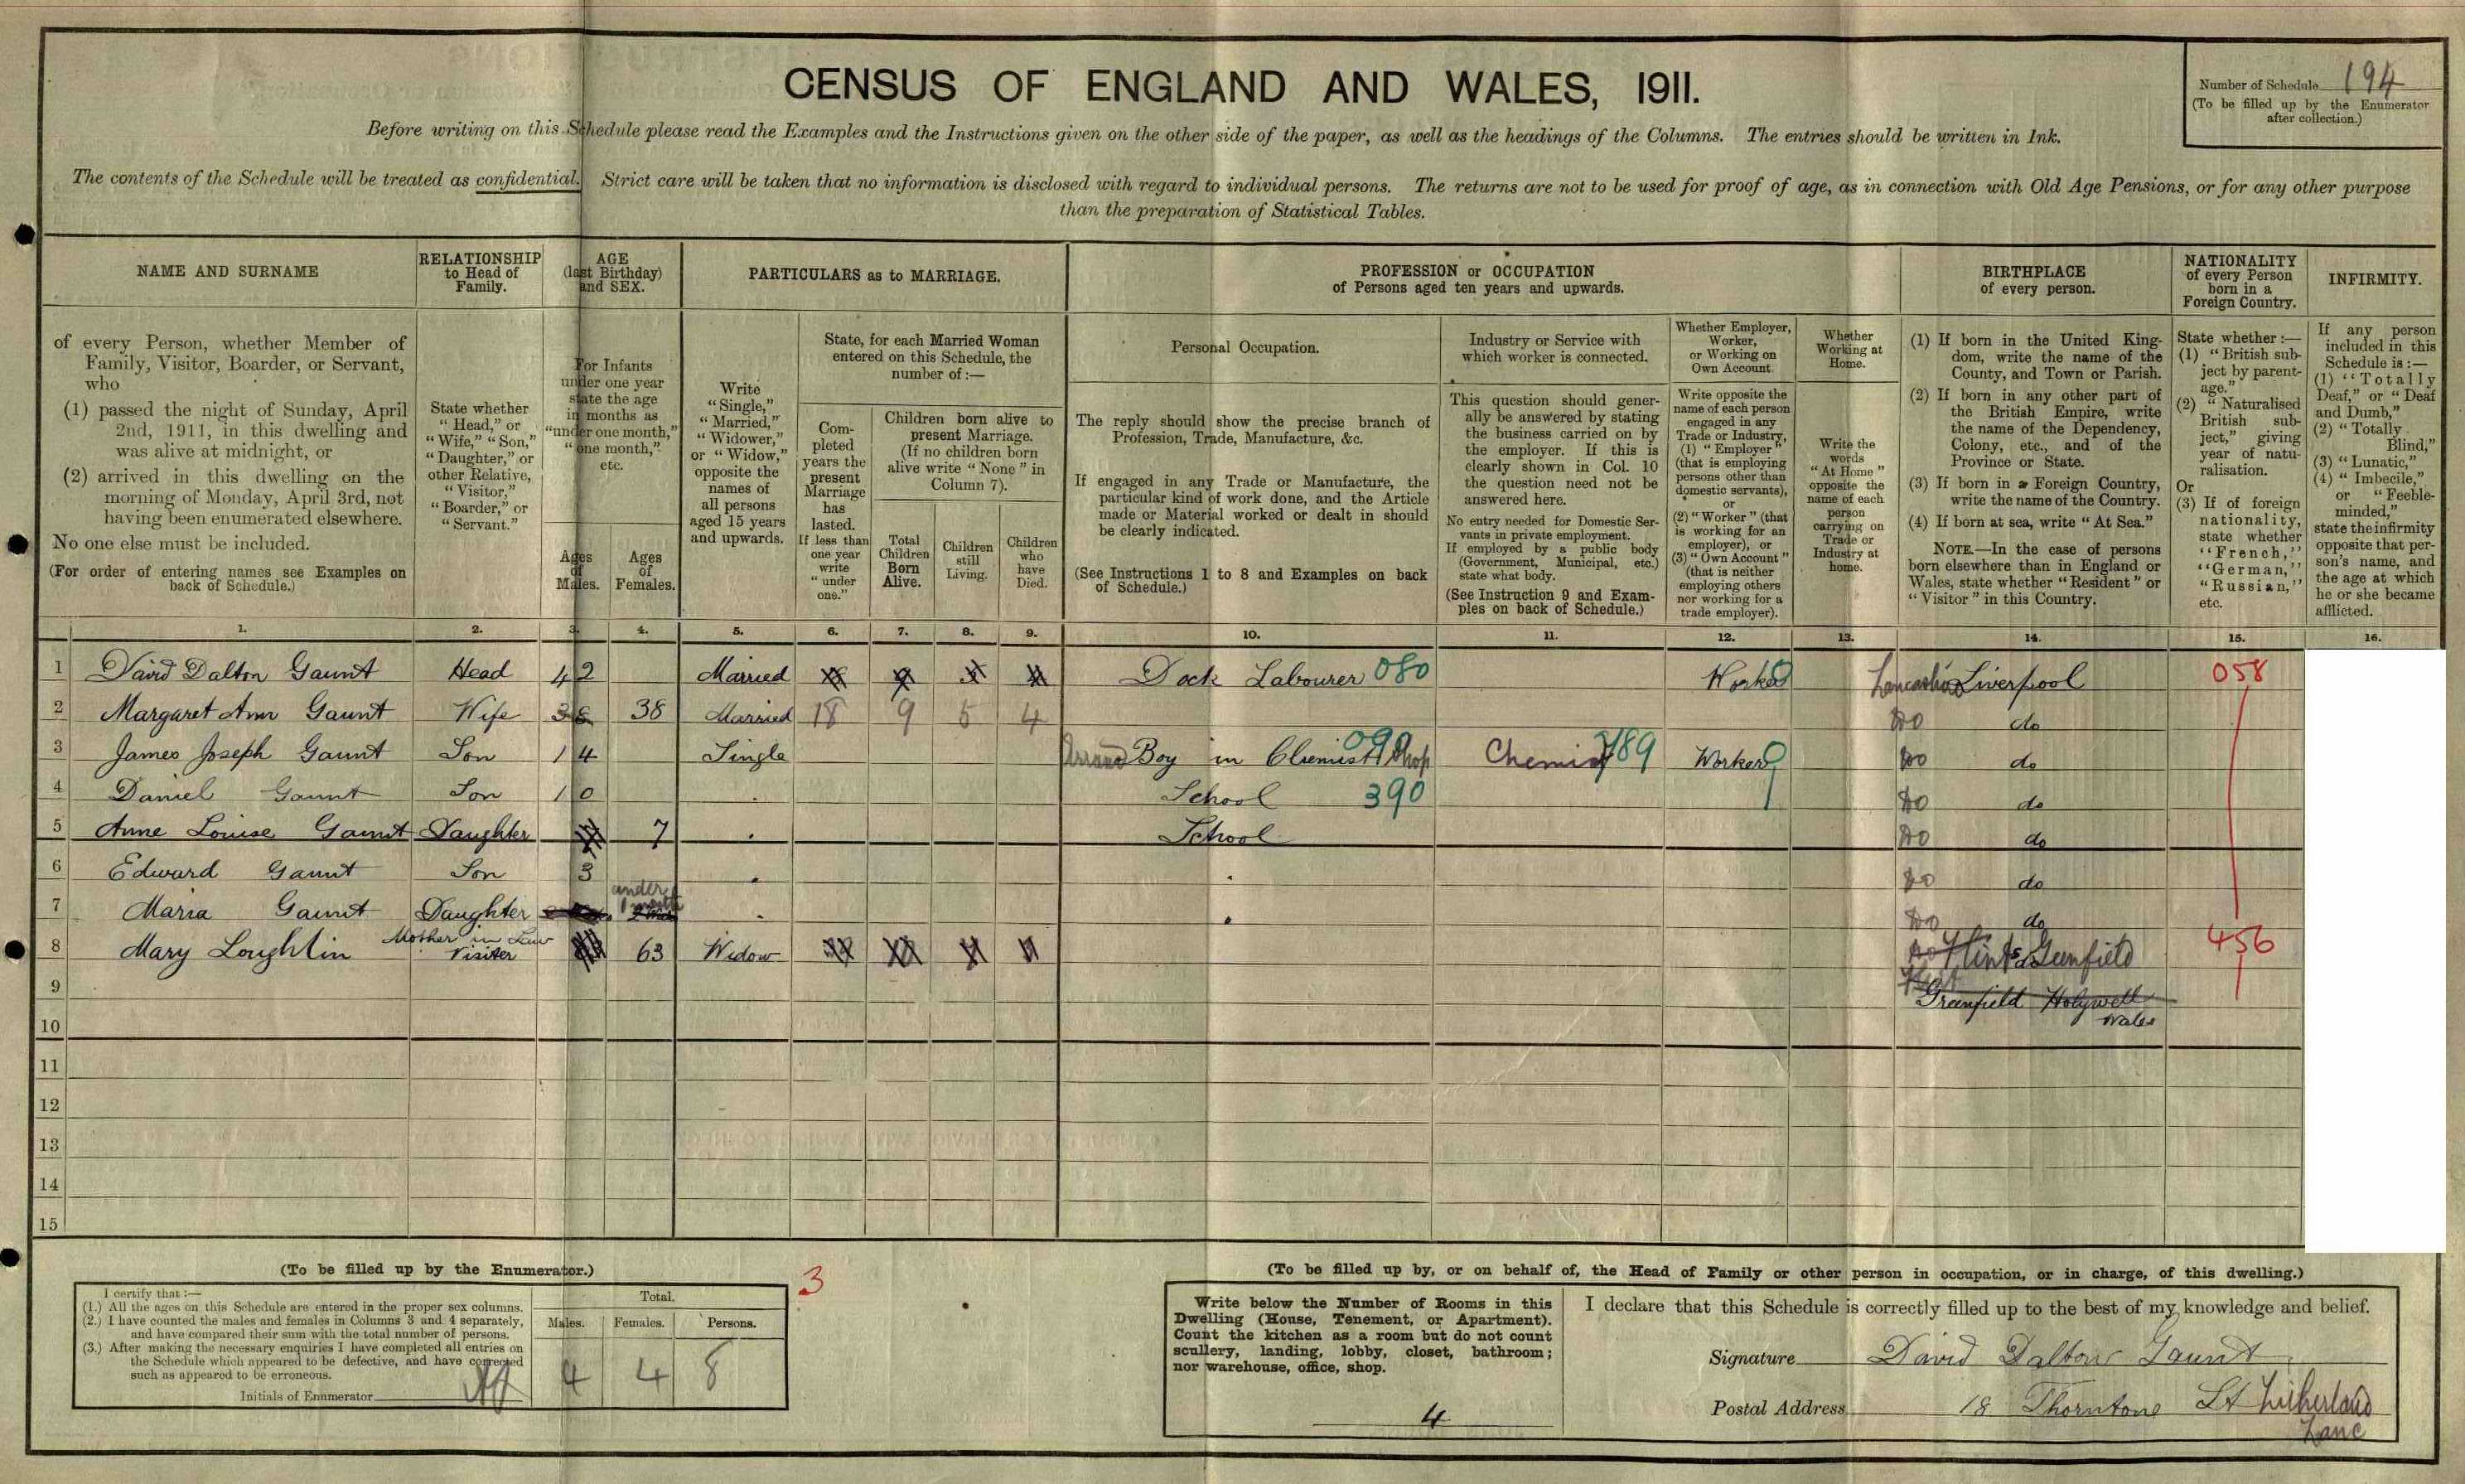 CENSUS OF ENGLAND AND WALES, 1911.
Number of Schedule 194
(To be filled up by the Enumerator
after collection.)
Before writing on this Schedule please read the Examples and the Instructions given on the other side of the paper, as well as the headings of the Columns. The entries should be written in Ink.
The contents of the Schedule will be treated as confidential. Strict care will be taken that no information is disclosed with regard to individual persons. The returns are not to be used for proof of age, as in connection with Old Age Pensions, or for any other purpose
than the preparation of Statistical Tables.
NAME AND SURNAME
of every Person, whether Member of
Family, Visitor, Boarder, or Servant,
who
(1) passed the night of Sunday, April
2nd, 1911, in this dwelling and
was alive at midnight, or
(2) arrived in this dwelling on the
morning of Monday, April 3rd, not
having been enumerated elsewhere.
No one else must be included.
(For order of entering names see Examples on
back of Schedule.)
RELATIONSHIP
to Head of
Family.
State whether
"Head," or
"Wife," "Son,"
"Daughter," or
other Relative,
"Visitor,"
"Boarder," or
"Servant."
AGE
(last Birthday)
and SEX.
For Infants
under one year
state the age
in months as
"under one month,"
"one month,"
etc.
Ages
of
Males.
Ages
of
Females.
PARTICULARS as to MARRIAGE.
Write
"Single,"
"Married,"
"Widower,"
or "Widow,"
opposite the
names of
all persons
aged 15 years
and upwards.
State, for each Married Woman
entered on this Schedule, the
number of:—
Com-
pleted
years the
present
Marriage
has
lasted.
If less than
one year
write
"under
one."
Children born alive to
present Marriage.
(If no children born
alive write "None" in
Column 7).
Total
Children
Born
Alive.
Children
still
Living.
Children
who
have
Died.
PROFESSION or OCCUPATION
of Persons aged ten years and upwards.
Personal Occupation.
The reply should show the precise branch of
Profession, Trade, Manufacture, &c.
If engaged in any Trade or Manufacture, the
particular kind of work done, and the Article
made or Material worked or dealt in should
be clearly indicated.
(See Instructions 1 to 8 and Examples on back
of Schedule.)
Industry or Service with
which worker is connected.
This question should gener-
ally be answered by stating
the business carried on by
the employer. If this is
clearly shown in Col. 10
the question need not be
answered here.
No entry needed for Domestic Ser-
vants in private employment.
If employed by a public body
(Government, Municipal, etc.)
state what body.
(See Instruction 9 and Exam-
ples on back of Schedule.)
Whether Employer,
Worker,
or Working on
Own Account.
Write opposite the
name of each person
engaged in any
Trade or Industry,
(1) "Employer"
(that is employing
persons other than
domestic servants),
or
(2) "Worker" (that
is working for an
employer), or
(3) "Own Account"
(that is neither
employing others
nor working for a
trade employer).
Whether
Working at
Home.
Write the
words
"At Home"
opposite the
name of each
person
carrying on
Trade or
Industry at
home.
BIRTHPLACE
of every person.
(1) If born in the United King-
dom, write the name of the
County, and Town or Parish.
(2) If born in any other part of
the British Empire, write
the name of the Dependency,
Colony, etc., and of the
Province or State.
(3) If born in a Foreign Country,
write the name of the Country.
(4) If born at sea, write "At Sea."
NOTE.—In the case of persons
born elsewhere than in England or
Wales, state whether "Resident" or
"Visitor" in this Country.
NATIONALITY
of every Person
born in a
Foreign Country.
State whether:—
(1) "British sub-
ject by parent-
age."
(2) "Naturalised
British sub-
ject," giving
year of natu-
ralisation.
Or
(3) If of foreign
nationality,
state whether
"French,"
"German,"
"Russian,"
etc.
INFIRMITY.
If any person
included in this
Schedule is:—
(1) "Totally
Deaf," or "Deaf
and Dumb,"
(2) "Totally
Blind,"
(3) "Lunatic,"
(4) "Imbecile,"
or "Feeble-
minded,"
state the infirmity
opposite that per-
son's name, and
the age at which
he or she became
afflicted.
1. 2. 3. 4. 5. 6. 7. 8. 9. 10. 11. 12. 13. 14. 15. 16.
1 David Dalton Gaunt Head 42 Married Dock Labourer 080 Worker Lancashire Liverpool 058
2 Margaret Ann Gaunt Wife 38 38 Married 18 9 5 4 Do do
3 James Joseph Gaunt Son 14 Single Errand Boy in Chemist Shop 090 Chemist 789 Worker Do do
4 Daniel Gaunt Son 10 School 390 Do do
5 Anne Louise Gaunt Daughter 7 School Do do
6 Edward Gaunt Son 3 Do do
7 Maria Gaunt Daughter under 1 month Do do
8 Mary Loughlin Mother in Law Visiter 63 Widow Flints Greenfield 456
9 Greenfield Holywell
10 Wales
11
12
13
14
15
(To be filled up by the Enumerator.)
I certify that:—
(1.) All the ages on this Schedule are entered in the proper sex columns.
(2.) I have counted the males and females in Columns 3 and 4 separately,
and have compared their sum with the total number of persons.
(3.) After making the necessary enquiries I have completed all entries on
the Schedule which appeared to be defective, and have corrected
such as appeared to be erroneous.
Initials of Enumerator
Total.
Males. Females. Persons.
4 4 8
3
(To be filled up by, or on behalf of, the Head of Family or other person in occupation, or in charge, of this dwelling.)
Write below the Number of Rooms in this
Dwelling (House, Tenement, or Apartment).
Count the kitchen as a room but do not count
scullery, landing, lobby, closet, bathroom;
nor warehouse, office, shop.
4
I declare that this Schedule is correctly filled up to the best of my knowledge and belief.
Signature David Dalton Gaunt
Postal Address 18 Thorntone St Litherland
Lanc